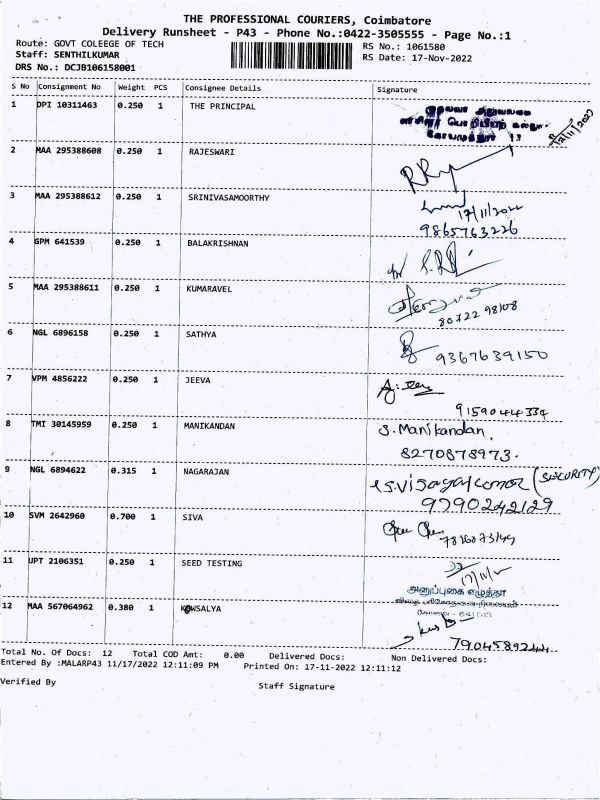 THE PROFESSIONAL COURIERS, Coimbatore
Delivery Runsheet - P43 - Phone No.:0422-3505555 - Page No.:1
Route: GOVT COLEEGE OF TECH RS No.: 1061580
Staff: SENTHILKUMAR RS Date: 17-Nov-2022
DRS No.: DCJB106158001
S No Consignment No Weight PCS Consignee Details Signature
1 DPI 10311463 0.250 1 THE PRINCIPAL
2 MAA 295388608 0.250 1 RAJESWARI
3 MAA 295388612 0.250 1 SRINIVASAMOORTHY
17/11/2022
9865763226
4 GPM 641539 0.250 1 BALAKRISHNAN
5 MAA 295388611 0.250 1 KUMARAVEL
80722 98108
6 NGL 6896158 0.250 1 SATHYA
9367639150
7 VPM 4856222 0.250 1 JEEVA
9159044334
8 TMI 30145959 0.250 1 MANIKANDAN S. Manikandan.
8270878973.
9 NGL 6894622 0.315 1 NAGARAJAN (SECURITY)
9790242129
10 SVM 2642960 0.700 1 SIVA
11 UPT 2106351 0.250 1 SEED TESTING
அனுப்புகை எழுத்தர்
12 MAA 567064962 0.380 1 KOWSALYA
Total No. Of Docs: 12 Total COD Amt: 0.00 Delivered Docs: Non Delivered Docs:
Entered By :MALARP43 11/17/2022 12:11:09 PM Printed On: 17-11-2022 12:11:12
Verified By Staff Signature